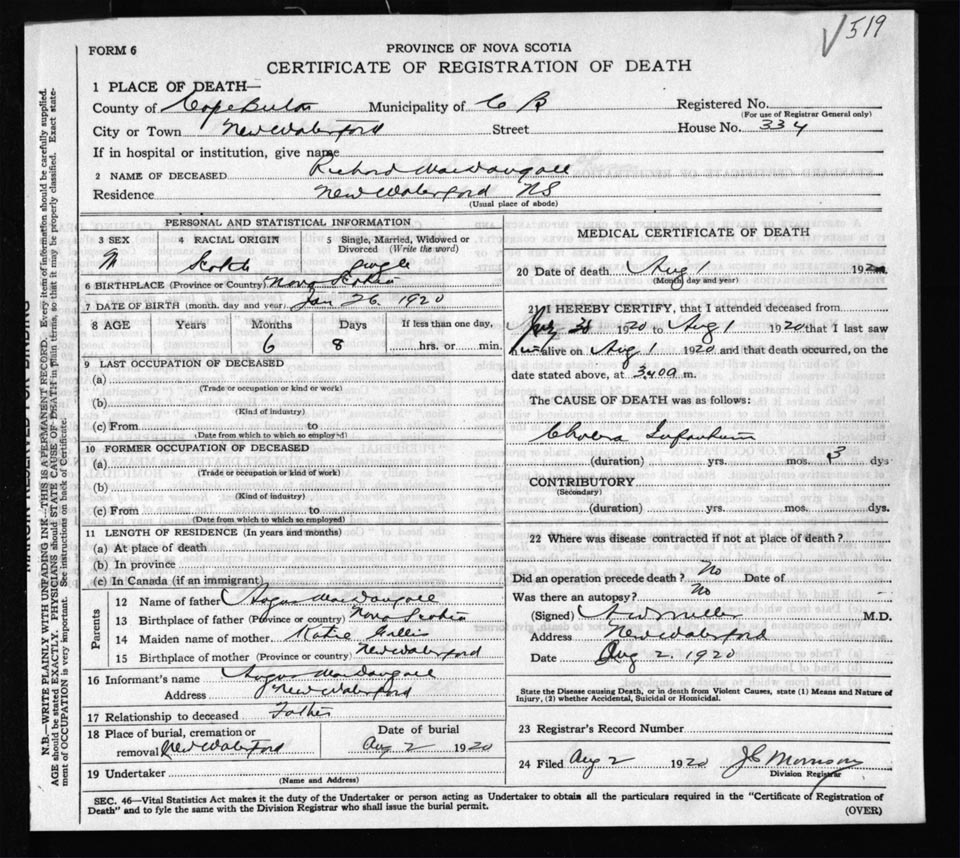 √519
FORM 6
PROVINCE OF NOVA SCOTIA
CERTIFICATE OF REGISTRATION OF DEATH
1 PLACE OF DEATH—
County of Cape Breton Municipality of C B Registered No.
(For use of Registrar General only)
City or Town New Waterford Street House No. 334
If in hospital or institution, give name
2 NAME OF DECEASED Richard MacDougall
Residence New Waterford NS
(Usual place of abode)
PERSONAL AND STATISTICAL INFORMATION
3 SEX 4 RACIAL ORIGIN 5 Single, Married, Widowed or Divorced (Write the word)
M Scotch Single
6 BIRTHPLACE (Province or Country) Nova Scotia
7 DATE OF BIRTH (month, day and year) Jan 26, 1920
8 AGE Years Months Days If less than one day,
6 8 hrs. or min.
9 LAST OCCUPATION OF DECEASED
(a)
(Trade or occupation or kind or work)
(b)
(Kind of industry)
(c) From to
(Date from which to which so employed)
10 FORMER OCCUPATION OF DECEASED
(a)
(Trade or occupation or kind of work)
(b)
(Kind of industry)
(c) From to
(Date from which to which so employed)
11 LENGTH OF RESIDENCE (In years and months)
(a) At place of death
(b) In province
(c) In Canada (if an immigrant)
Parents
12 Name of father Angus MacDougall
13 Birthplace of father (Province or country) Nova Scotia
14 Maiden name of mother Katie Gillis
15 Birthplace of mother (Province or country) New Waterford
16 Informant's name Angus MacDougall
Address New Waterford
17 Relationship to deceased Father
18 Place of burial, cremation or removal New Waterford
Date of burial Aug 2 1920
19 Undertaker
(Name and Address)
MEDICAL CERTIFICATE OF DEATH
20 Date of death Aug 1 1920
(Month day and year)
21 I HEREBY CERTIFY, that I attended deceased from
1920 to Aug 1 1920 that I last saw
him alive on Aug 1 1920 and that death occurred, on the
date stated above, at m.
The CAUSE OF DEATH was as follows:
Cholera Infantum
(duration) yrs. mos. 3 dys
CONTRIBUTORY
(Secondary)
(duration) yrs. mos. dys.
22 Where was disease contracted if not at place of death?
Did an operation precede death? No Date of
Was there an autopsy? No
(Signed) M.D.
Address New Waterford
Date Aug 2. 1920
State the Disease causing Death, or in death from Violent Causes, state (1) Means and Nature of
Injury, (2) whether Accidental, Suicidal or Homicidal.
23 Registrar's Record Number
24 Filed Aug 2 1920 J C Morrison
Division Registrar
SEC. 46—Vital Statistics Act makes it the duty of the Undertaker or person acting as Undertaker to obtain all the particulars required in the "Certificate of Registration of
Death" and to fyle the same with the Division Registrar who shall issue the burial permit.
(OVER)
MARGIN RESERVED FOR BINDING
N.B.—WRITE PLAINLY WITH UNFADING INK—THIS IS A PERMANENT RECORD. Every item of information should be carefully supplied.
AGE should be stated EXACTLY. PHYSICIANS should STATE CAUSE OF DEATH in plain terms, so that it may be properly classified. Exact state-
ment of OCCUPATION is very important. See instructions on back of Certificate.